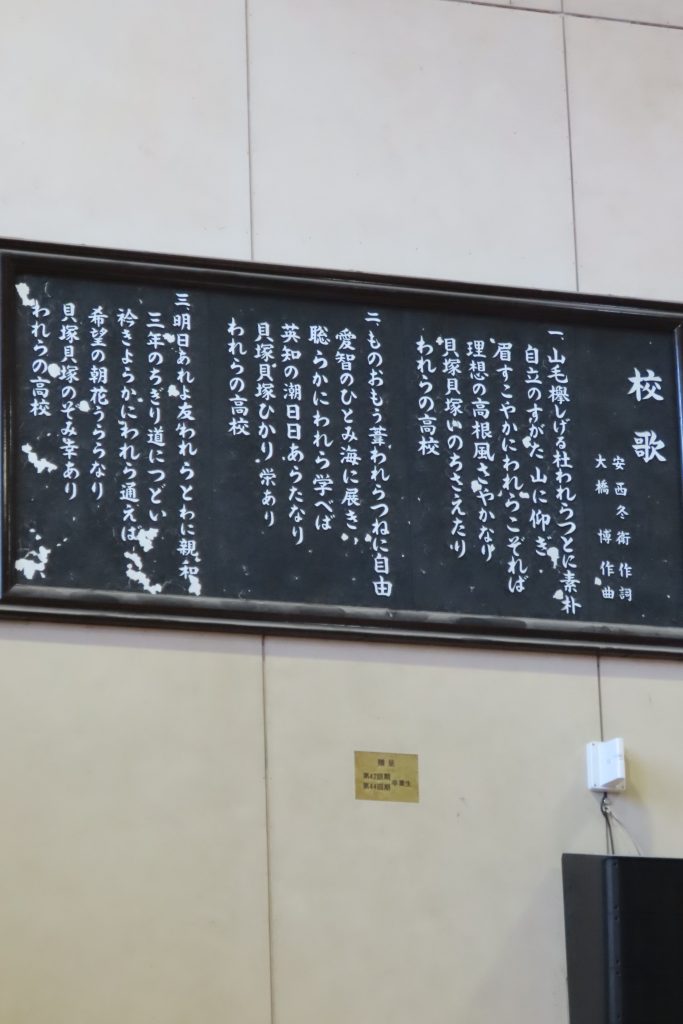 校歌
安西冬衛 作詞
大橋 博 作曲
一、山毛欅しげる杜われらつとに素朴
自立のすがた 山に仰ぎ
眉すこやかにわれらこぞれば
理想の高根風さやかなり
貝塚貝塚いのちさえたり
われらの高校
二、ものおもう葦われらつねに自由
愛智のひとみ海に展き
聡らかにわれら学べば
英知の潮日日あらたなり
貝塚貝塚ひかり 栄あり
われらの高校
三、明日あれよ友われらとわに親和
三年のちぎり道につどい
衿きよらかにわれら通えば
希望の朝花うららなり
貝塚貝塚のぞみ幸あり
われらの高校
贈呈
第42回期
第44回期
卒業生